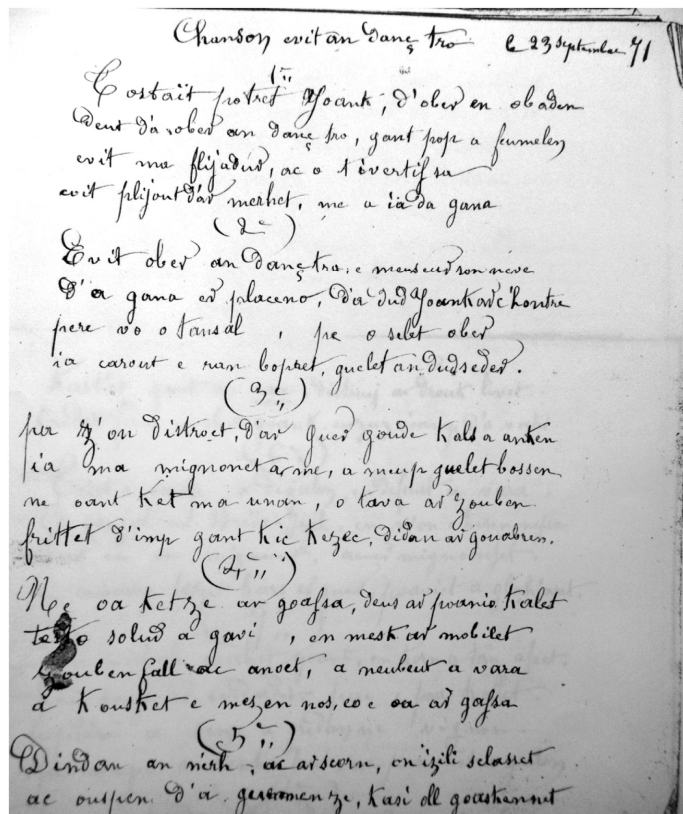 Chanson evit an danç tro le 23 septembre 71
1er
Tostaït potret yoank, d'ober en obaden
Deut d'a ober an danç tro, gant pop a feumelen
evit ma flijadur, ac o tivertissa
evit plijout d'ar merhet, me a ia da gana
(2e)
Evit ober an danç tro, e meus eur son neve
D'a gana er placeno, d'a dud yoank ar c'hontre
pere vo o tansal, pe o sellet ober
ia carout e ran bopret, guelet an dud seder.
(3e)
pa z'on distroet, d'ar guer goude kals a anken
ia ma mignonet a me, a meup guelet bossen
ne oant ket ma unan, o tava ar zouben
frittet d'imp gant kic kezec, didan ar gouabren.
(4e)
Ne oa ket ze ar goassa, deus ar poanio kalet
solud a gavi, en mesk ar mobilet
zouben fall ac anoet, a neubeut a vara
a kousket e mezen nos, eo e oa ar gassa
(5e)
Dindan an nerh, ac ar scorn, on izili selasset
ac ouspen d'a ze, kasi oll goaskennet